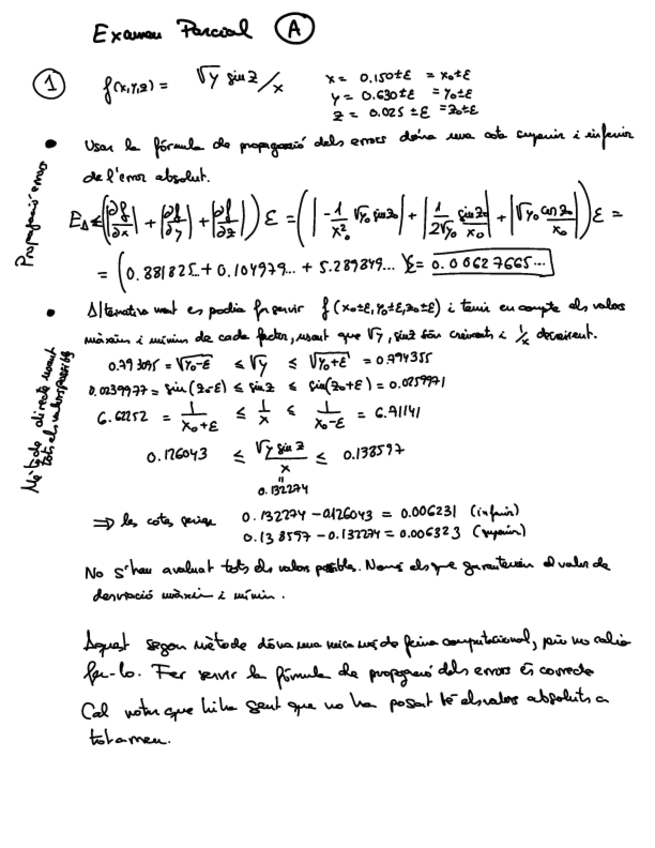 Examen Parcial A
1 f(x,y,z) = √y sin z / x x = 0.150±ε = x₀±ε
y = 0.630±ε = y₀±ε
z = 0.025 ±ε = z₀±ε
Propagació errors
• Usar la fórmula de propagació dels errors dóna una cota superior i inferior
de l'error absolut.
E_Δ ≤ (|∂f/∂x| + |∂f/∂y| + |∂f/∂z|) ε = (|-1/x₀² √y₀ sin z₀| + |1/(2√y₀) sin z₀/x₀| + |√y₀ cos z₀/x₀|) ε =
= (0.881825... + 0.104979... + 5.289849...) ε = 0.00627665...
Mètode directe usant
tots els valors possibles
• Alternativament es podia fer servir f(x₀±ε, y₀±ε, z₀±ε) i tenir en compte els valors
màxim i mínim de cada factor, usant que √y, sin z són creixents i 1/x decreixent.
0.793095 = √(y₀-ε) ≤ √y ≤ √(y₀+ε) = 0.794355
0.0239977 = sin(z₀-ε) ≤ sin z ≤ sin(z₀+ε) = 0.0259971
6.62252 = 1/(x₀+ε) ≤ 1/x ≤ 1/(x₀-ε) = 6.71141
0.126043 ≤ √y sin z / x ≤ 0.138597
=
0.132274
⇒ les cotes serien 0.132274 - 0.126043 = 0.006231 (inferior)
0.138597 - 0.132274 = 0.006323 (superior)
No s'han avaluat tots els valors possibles. Només els que garanteixen el valor de
desviació màxim i mínim.
Aquest segon mètode dóna una mica més de feina computacional, però no calia
fer-lo. Fer servir la fórmula de propagació dels errors és correcte
Cal notar que hi ha gent que no ha posat bé els valors absoluts a
tot arreu.